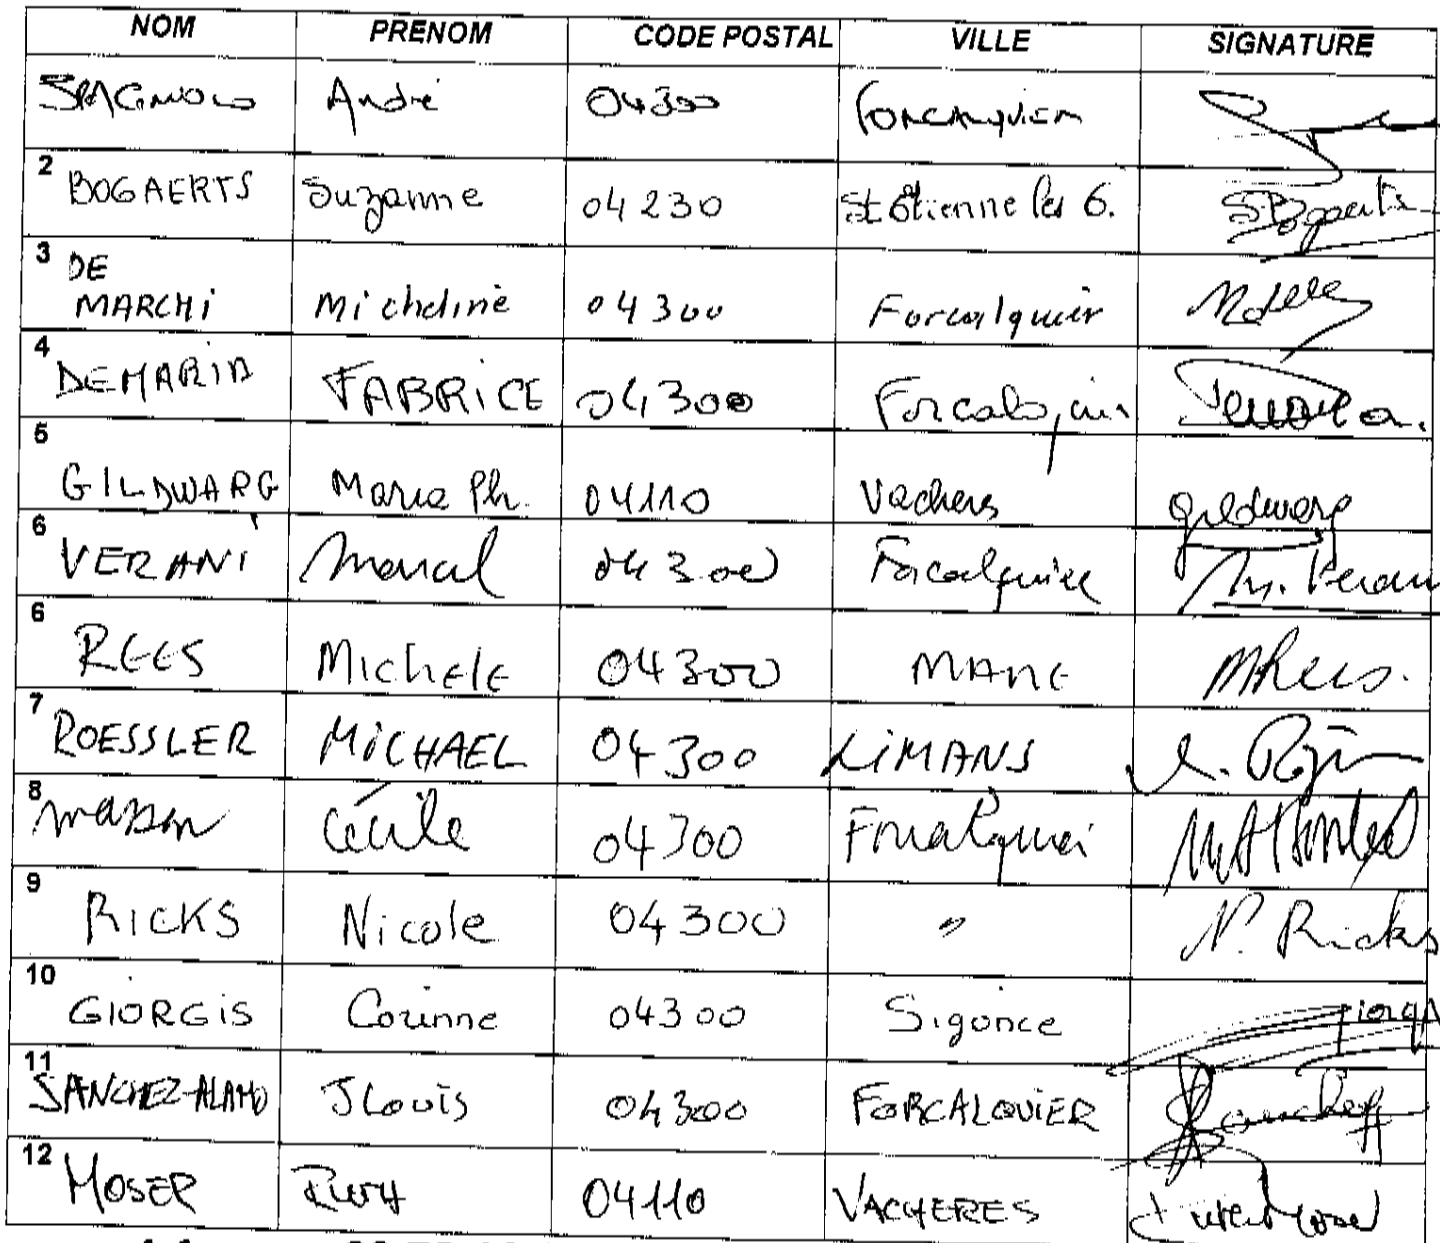 NOM PRENOM CODE POSTAL VILLE SIGNATURE
André 04300 Forcalquier
2 BOGAERTS Suzanne 04230 St Etienne les O. SBogaerts
3 DE
MARCHI Micheline 04300 Forcalquier
4 DEMARIA FABRICE 04300 Forcalquier Demaria.
5 GILDWARG Marie Ph. 04110 Vachers gildwarg
6 VERANI Marcal 04300 Forcalquier M. Verani
6 REES MichElE 04300 MANE MRees.
7 ROESSLER MiCHAEL 04300 LiMANS
8 masson Cécile 04300 Forcalquier
9 RICKS Nicole 04300 " N. Ricks
10 GIORGIS Corinne 04300 Sigonce giorgis
11 SANCHEZ-ALAMO JLouis 04300 FORCALQUIER
12 MOSER RUTH 04110 VACHERES